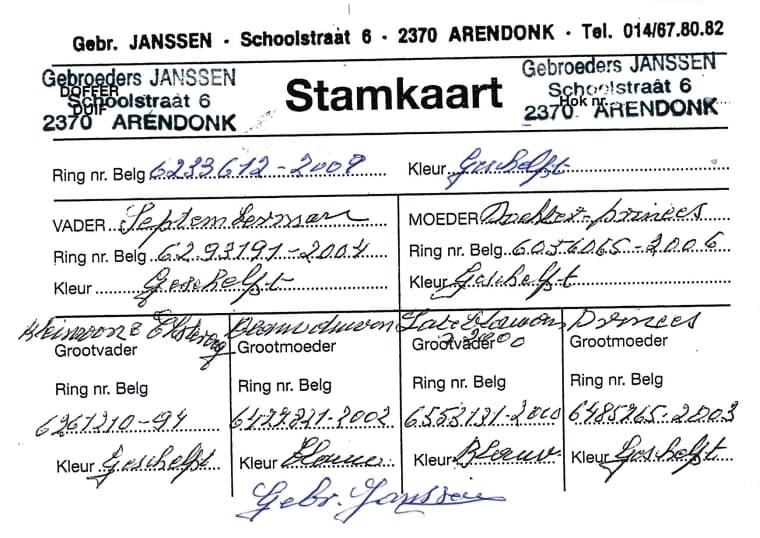 Gebr. JANSSEN - Schoolstraat 6 - 2370 ARENDONK - Tel. 014/67.80.82
Gebroeders JANSSEN
DOFFER
Schoolstraat 6
DUIF
2370 ARENDONK
Stamkaart
Gebroeders JANSSEN
Schoolstraat 6
Hok nr.
2370 ARENDONK
Ring nr. Belg 6233612-2008 Kleur Geschelft
VADER Septemberman MOEDER Dochter-prinses
Ring nr. Belg 6293191-2004 Ring nr. Belg 6036065-2006
Kleur Geschelft Kleur Geschelft
Kleinzoon Late Blauwen Prinses
Grootvader Grootmoeder Grootvader 2000 Grootmoeder
Ring nr. Belg Ring nr. Belg Ring nr. Belg Ring nr. Belg
6261210-94 2002 6553131-2000 6485265-2003
Kleur Geschelft Kleur Blauw Kleur Blauw Kleur Geschelft
Gebr. Janssen